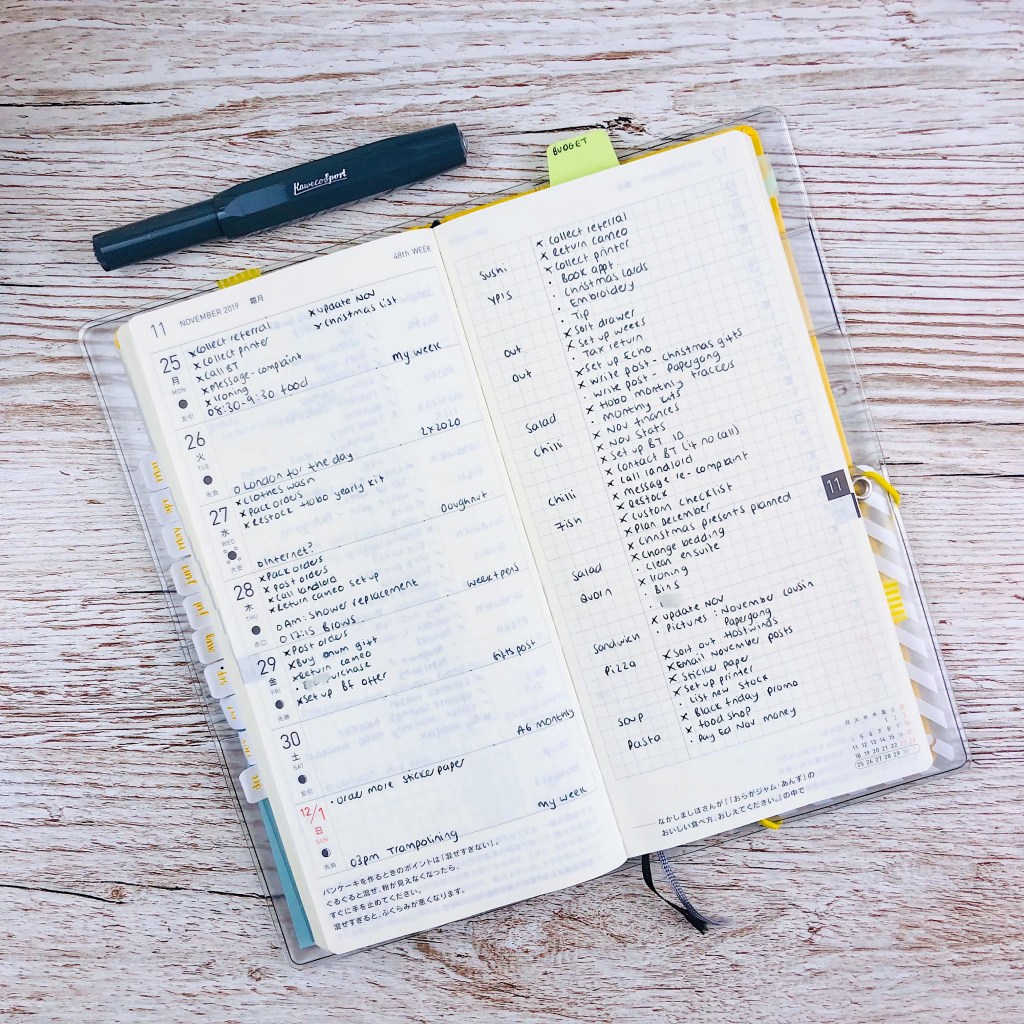 Kaweco Sport
BUDGET
11 NOVEMBER 2019 霜月
48th WEEK
x Collect referral
x update NOV
x Collect printer
x Christmas list
x Call BT
x message - complaint
x Ironing
08:30-9:30 food
My week
25
月
MON
先勝
26
火
TUE
2x2020
O London for the day
27
水
WED
x Clothes wash
x Pack orders
x Restock Hobo yearly kit
Doughnut
O Internet?
28
木
THU
x Pack orders
x Post orders
x Call landlord
x Return cameo set up
week + pens
O AM: Shower replacement
O 12:15 Brows
29
金
FRI
x Post orders
x Buy mum gift
x Return cameo
purchase
x Set up BF offer
Gifts post
30
土
SAT
A6 monthly
12/1
日
SUN
• Order more sticker paper
my week
03pm Trampolining
パンケーキを作るときのポイントは「混ぜすぎない」。
ぐるぐると混ぜ、粉が見えなくなったら、
すぐに手を止めてください。
混ぜすぎると、ふくらみが悪くなります。
x Collect referral
x Return cameo
Sushi x Collect printer
• Book appt
YPIS • Christmas cards
• Embroidery
• Tip
x Sort drawer
x Set up weeks
Out • Tax return
x Set up Echo
Out x Write post - Christmas gifts
• Write post - Papergang
x Hobo monthly tracers
• Monthly kits
Salad x Nov finances
x Nov stats
Chilli x Set up BT ID
x Contact BT (it no call)
x Call landlord
x message re-complaint
Chilli x Restock
x Custom checklist
Fish x Plan December
x Christmas presents planned
x Change bedding
• Clean ensuite
Salad x Ironing
• Bins
Quorn
x update NOV
• Pictures: November cousin
Papergang
Sandwich x Sort out Hostwinds
x Email November posts
Pizza x Sticker paper
x Set up printer
• List new stock
x Black Friday promo
Soup x food shop
Pasta • Pay Ed Nov money
11
なかしましほさんが『「おらがジャム・あんず」の
おいしい食べ方、おしえてください。』の中で